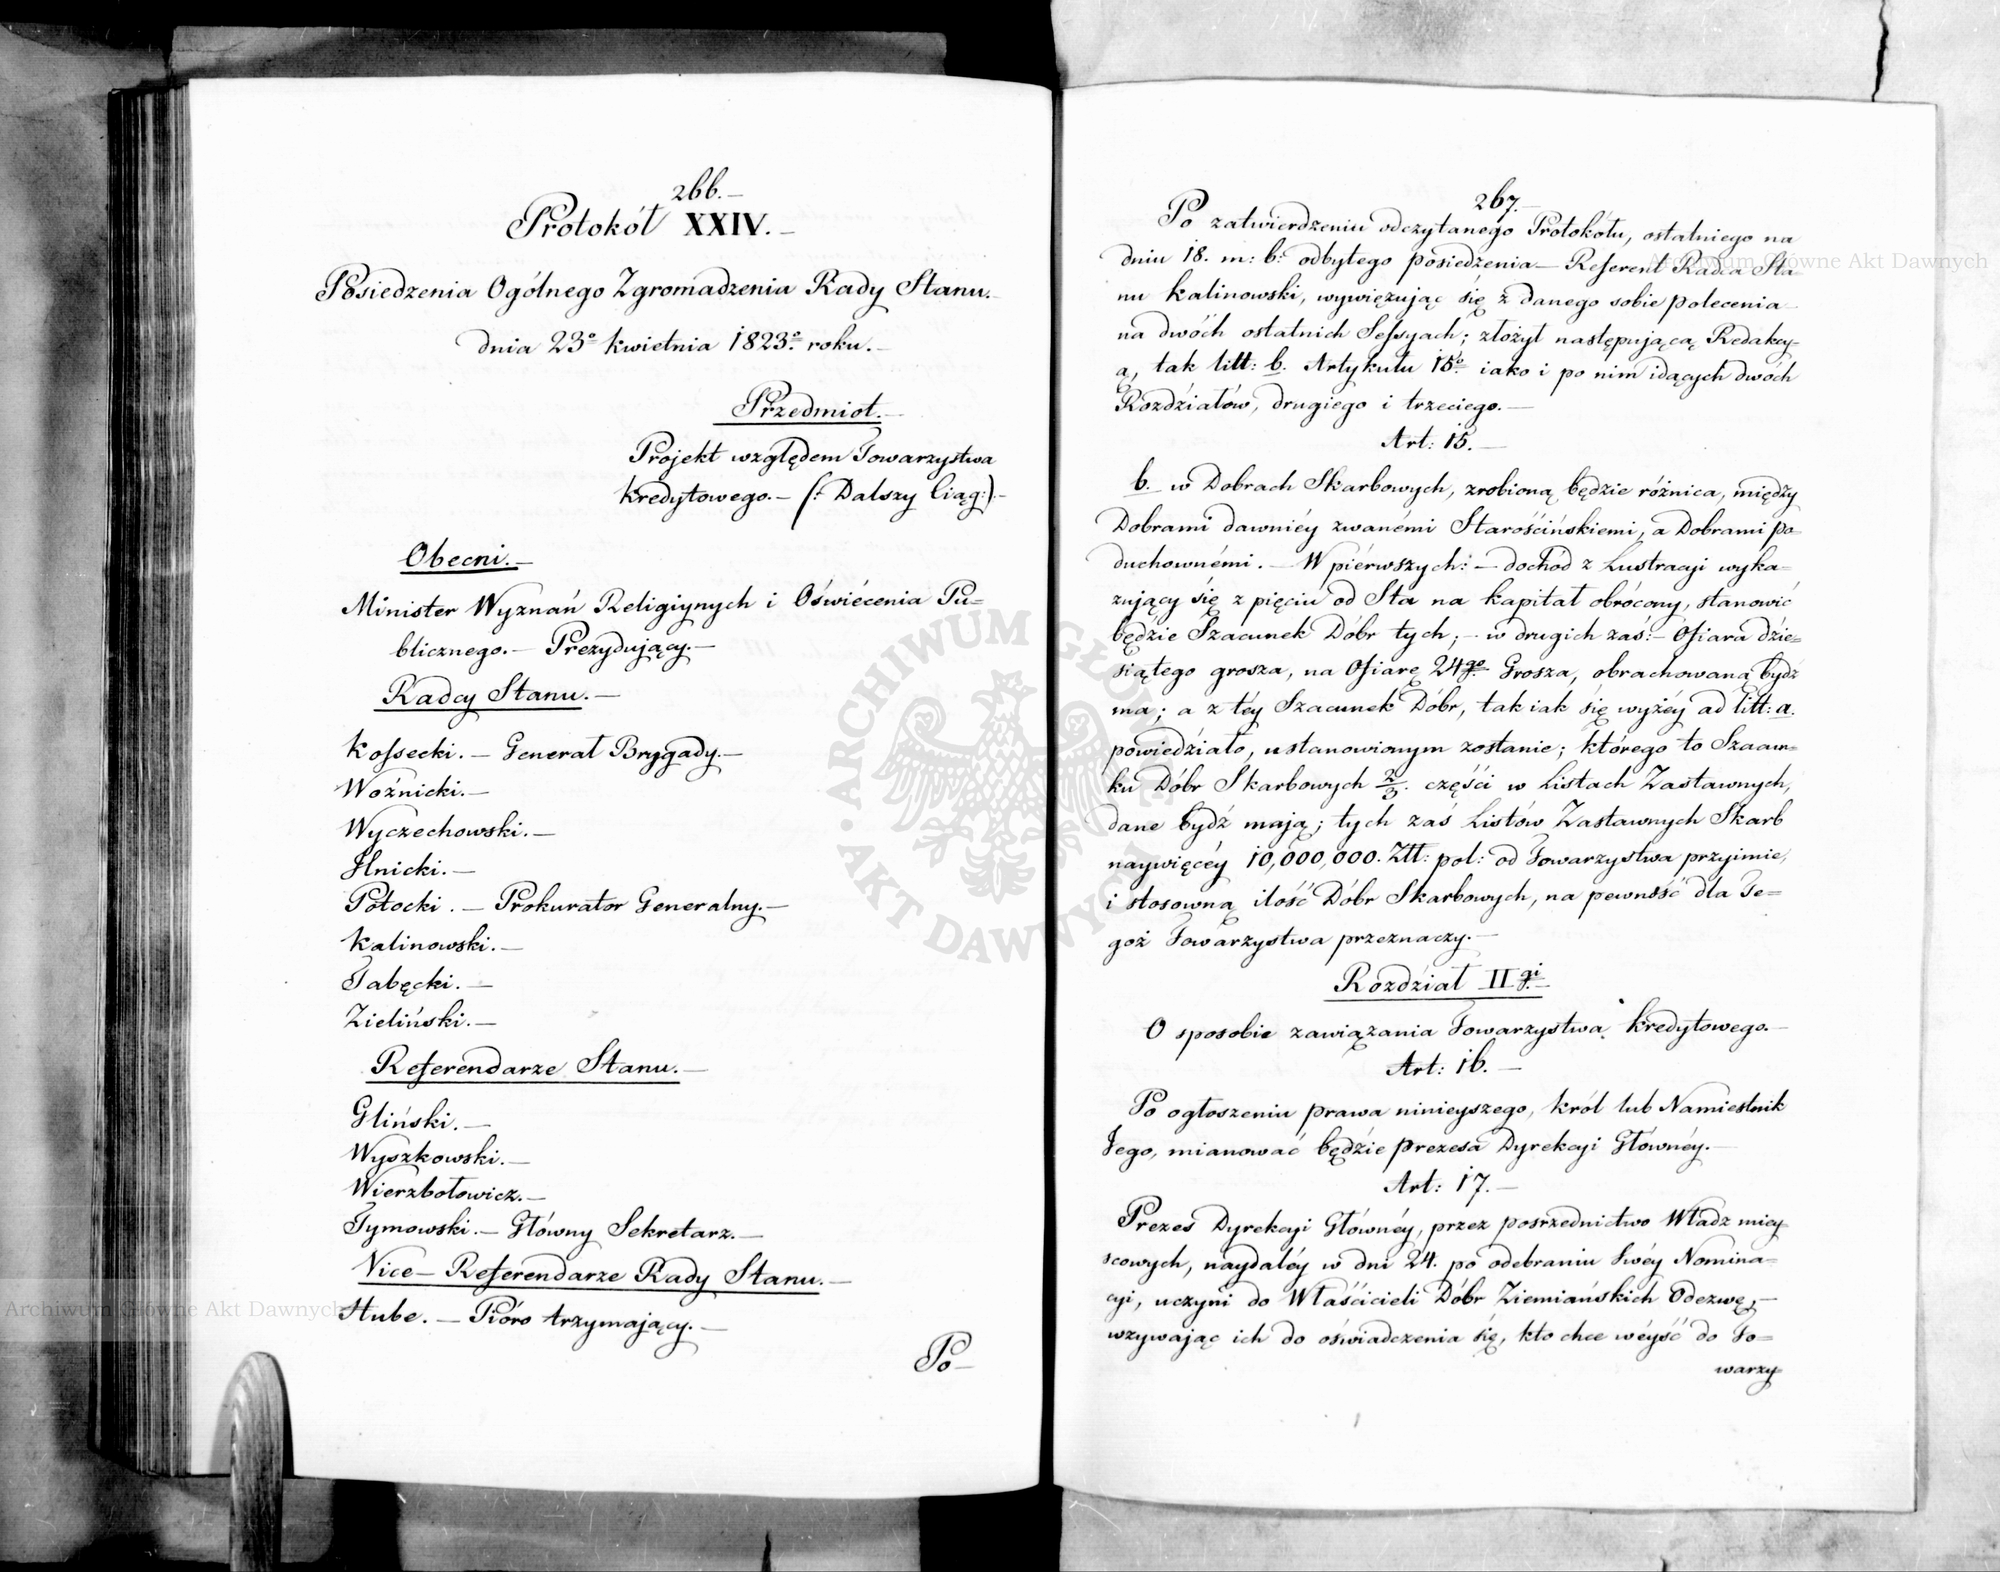 266.—
Protokół XXIV.—
Posiedzenia Ogólnego Zgromadzenia Rady Stanu.—
dnia 23º kwietnia 1823º roku.—
Przedmiot.—
Projekt względem Towarzystwa
kredytowego.— (: Dalszy Ciąg:).—
Obecni.—
Minister Wyznań Religiynych i Oświécenia Pu=
blicznego.— Prezydujący.—
Radcy Stanu.—
Kossecki.— Generał Brygady.—
Woźnicki.—
Wyczechowski.—
Ilnicki.—
Potocki.— Prokurator Generalny.—
Kalinowski.—
Tabęcki.—
Zieliński.—
Referendarze Stanu.—
Gliński.—
Wyszkowski.—
Wierzbołowicz.—
Tymowski.— Główny Sekretarz.—
Vice— Referendarze Rady Stanu.—
Hube.— Pióro trzymający.—
Po—
267.
Po zatwierdzeniu odczytanego Protokółu, ostatniego na
dniu 18. m: b: odbytego posiedzenia— Referent Radca Sta=
nu Kalinowski, wywięzując się z danego sobie polecenia
na dwóch ostatnich Sessyach; złożył następującą Redakcy=
ą, tak litt: b. Artykułu 15º iako i po nim idących dwóch
Rozdziałów, drugiego i trzeciego.—
Art: 15.—
b. w Dobrach Skarbowych, zrobioną będzie różnica, między
Dobrami dawniéy zwanémi Starościńskiemi, a Dobrami po=
duchownémi.— W piérwszych:— dochód z Lustracyi wyka=
zujący się z pięciu od Sta na kapitał obrócony, stanowić
będzie Szacunek Dóbr tych;— w drugich zaś:— Ofiara dzie=
siątego grosza, na Ofiarę 24go Grosza, obrachowaną bydź
ma; a z téy Szacunek Dóbr, tak iak się wyżéy ad litt: a.
powiedziało, ustanowionym zostanie; którego to Szacun=
ku Dóbr Skarbowych 2/3. części w Listach Zastawnych,
dane bydź mają; tych zaś Listów Zastawnych Skarb
naywięcéy 10,000,000. Ztł: pol: od Towarzystwa przyimie,
i stosowną ilość Dóbr Skarbowych, na pewność dla Te=
goż Towarzystwa przeznaczy.—
Rozdział II gi.—
O sposobie zawiązania Towarzystwa kredytowego.—
Art: 16.—
Po ogłoszeniu prawa ninieyszego, król lub Namiestnik
Jego, mianować będzie prezesa Dyrekcyi Głównéy.—
Art: 17.—
Prezes Dyrekcyi Głównéy, przez posrzednictwo Władz miey=
scowych, naydaléy w dni 24. po odebraniu swéy Nomina=
cyi, uczyni do Właścicieli Dóbr Ziemiańskich Odezwę,—
wzywając ich do oświadczenia się, kto chce wéyść do To=
warzy=
ARCHIWUM GŁÓWNE
AKT DAWNYCH
Archiwum Główne Akt Dawnych
Archiwum Główne Akt Dawnych